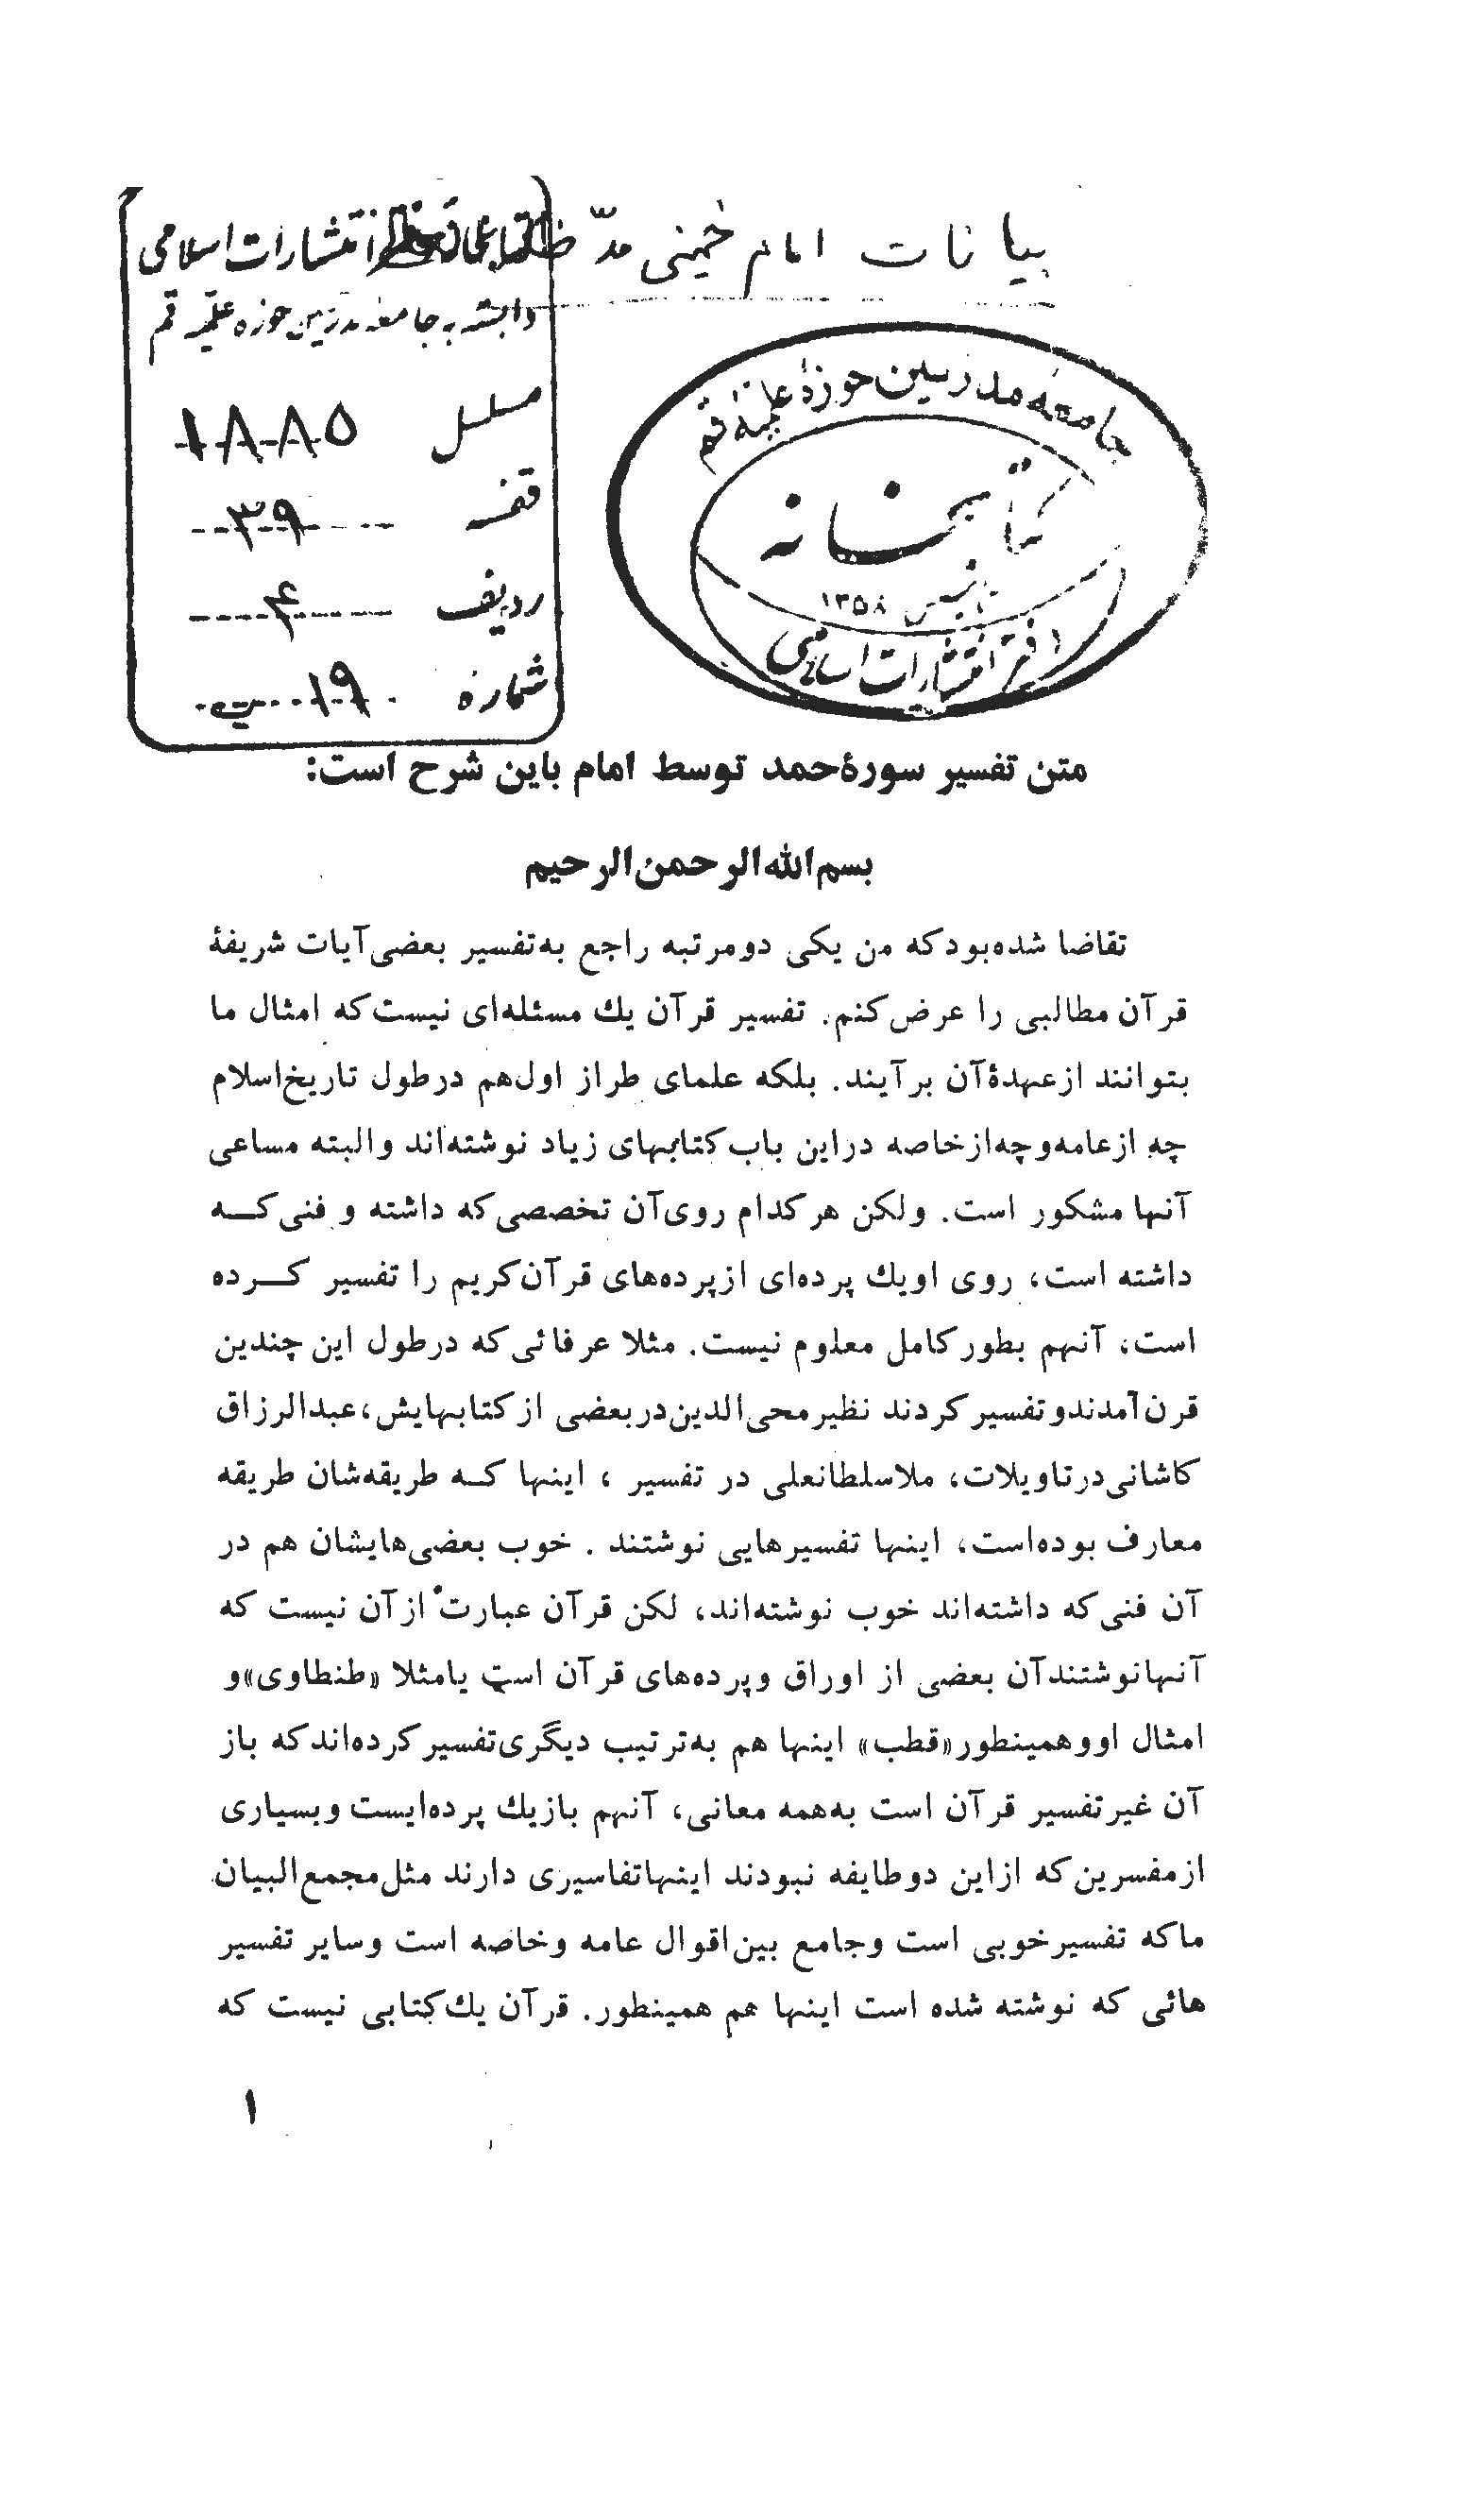 بیانات امام خمینی مدّ
انتشارات اسلامی
وابسته به جامعه مدرسین حوزه علمیّه قم
مسلسل ۱۸۸۵
قفسه ۳۹
ردیف ۴
شماره ۱۹ ب
جامعه مدرسین حوزهٔ علمیّهٔ قم
کتابخانه
تاسیس ۱۳۵۸
دفتر انتشارات اسلامی
متن تفسیر سورهٔ حمد توسط امام باین شرح است:
بسم‌الله‌الرحمن‌الرحیم
تقاضا شده‌بود که من یکی دومرتبه راجع به‌تفسیر بعضی‌آیات شریفهٔ
قرآن مطالبی را عرض‌کنم. تفسیر قرآن یك مسئله‌ای نیست‌که امثال ما
بتوانند ازعهدهٔ‌آن برآیند. بلکه علمای طراز اول‌هم درطول تاریخ‌اسلام
چه ازعامه‌وچه‌ازخاصه دراین باب‌کتابهای زیاد نوشته‌اند والبته مساعی
آنها مشکور است. ولکن هرکدام روی‌آن تخصصی‌که داشته و فنی‌کــه
داشته است، روی اویك پرده‌ای ازپرده‌های قرآن‌کریم را تفسیر کــرده
است، آنهم بطورکامل معلوم نیست. مثلا عرفائی‌که درطول این چندین
قرن‌آمدندوتفسیرکردند نظیرمحی‌الدین‌دربعضی ازکتابهایش،عبدالرزاق
کاشانی‌درتاویلات، ملاسلطانعلی در تفسیر ، اینها کــه طریقه‌شان طریقه
معارف بوده‌است، اینها تفسیرهایی نوشتند . خوب بعضی‌هایشان هم در
آن فنی‌که داشته‌اند خوب نوشته‌اند، لکن قرآن عبارت ازآن نیست که
آنهانوشتندآن بعضی از اوراق وپرده‌های قرآن است یامثلا «طنطاوی»و
امثال اووهمینطور«قطب» اینها هم به‌ترتیب دیگری‌تفسیرکرده‌اندکه باز
آن غیرتفسیر قرآن است به‌همه معانی، آنهم بازیك پرده‌ایست وبسیاری
ازمفسرین‌که ازاین دوطایفه نبودند اینهاتفاسیری دارند مثل‌مجمع‌البیان
ماکه تفسیرخوبی است وجامع بین‌اقوال عامه وخاصه است وسایر تفسیر
هائی که نوشته شده است اینها هم همینطور. قرآن یك‌کتابی نیست که
۱